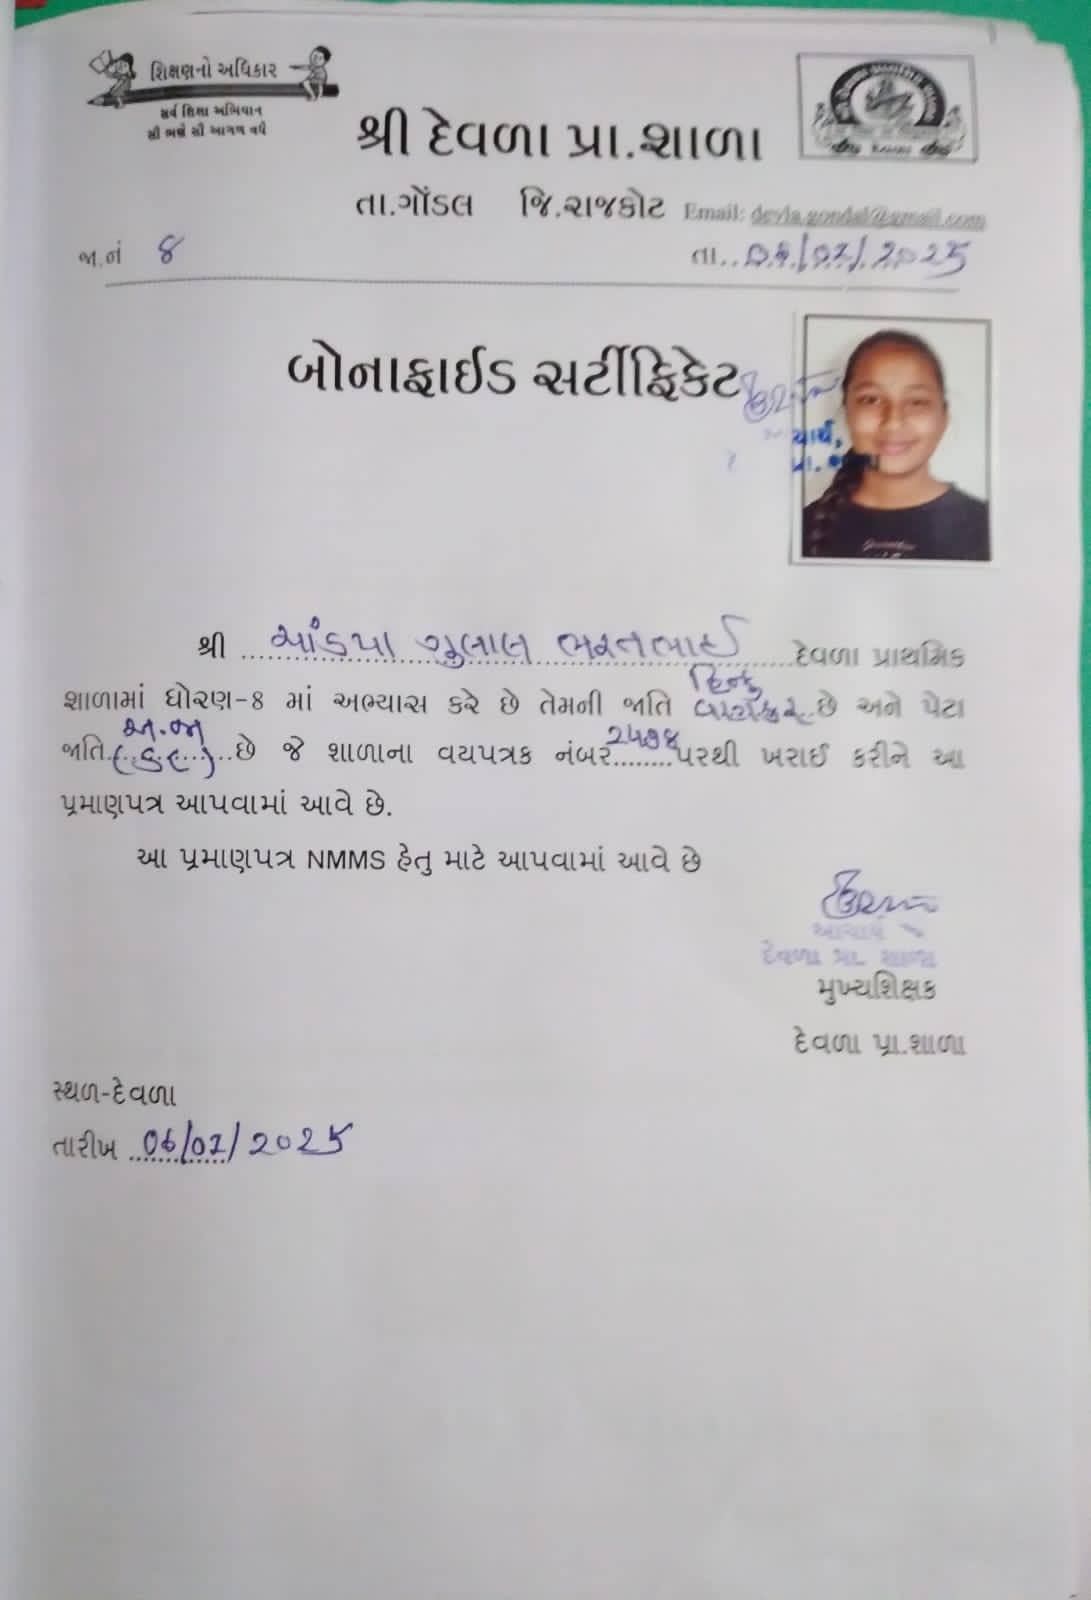 શિક્ષણનો અધિકાર
સર્વ શિક્ષા અભિયાન
સૌ ભણે સૌ આગળ વધે
શ્રી દેવળા પ્રા.શાળા
તા.ગોંડલ જિ.રાજકોટ Email: devla.gondal@gmail.com
જા.નં ૪
તા...06/02/2025
બોનાફાઈડ સર્ટીફિકેટ
શ્રી ચાંડપા ગુલાલ ભરતભાઈ દેવળા પ્રાથમિક
શાળામાં ધોરણ-8 માં અભ્યાસ કરે છે તેમની જાતિ હિન્દુ વણકર છે અને પેટા
જાતિ અ.જા છે જે શાળાના વયપત્રક નંબર પરથી ખરાઈ કરીને આ
પ્રમાણપત્ર આપવામાં આવે છે.
આ પ્રમાણપત્ર NMMS હેતુ માટે આપવામાં આવે છે
આચાર્ય
દેવળા પ્રા. શાળા
મુખ્યશિક્ષક
દેવળા પ્રા.શાળા
સ્થળ-દેવળા
તારીખ 06/02/2025